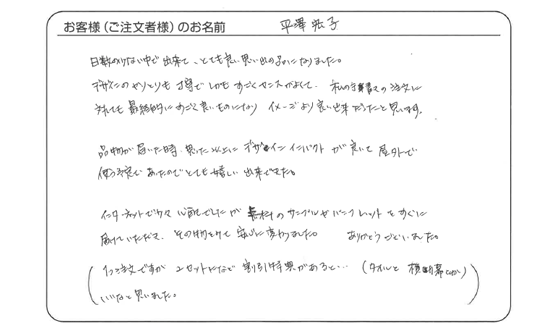 お客様(ご注文者様)のお名前 平澤 宏子
日数のない中で出来て、とても良い思い出の品になりました。
デザインのやりとりも丁寧でしかもすごくセンスがよくて、私の注文に
対しても最終的にすごく良いものになり イメージより良い出来だったと思います。
品物が届いた時、思った以上にデザインインパクトが良いて屋外で
使う予定であったのでとても嬉しい出来でした。
インターネットで 心配でしたが 無料のサンプルやパンフレットをすぐに
届けていただき、その物を見て安心に変わりました。 ありがとうございました。
(1つ注文ですが 2セットになど 割引特典があると… (タオルと横断幕とか)
いいなと思いました。)